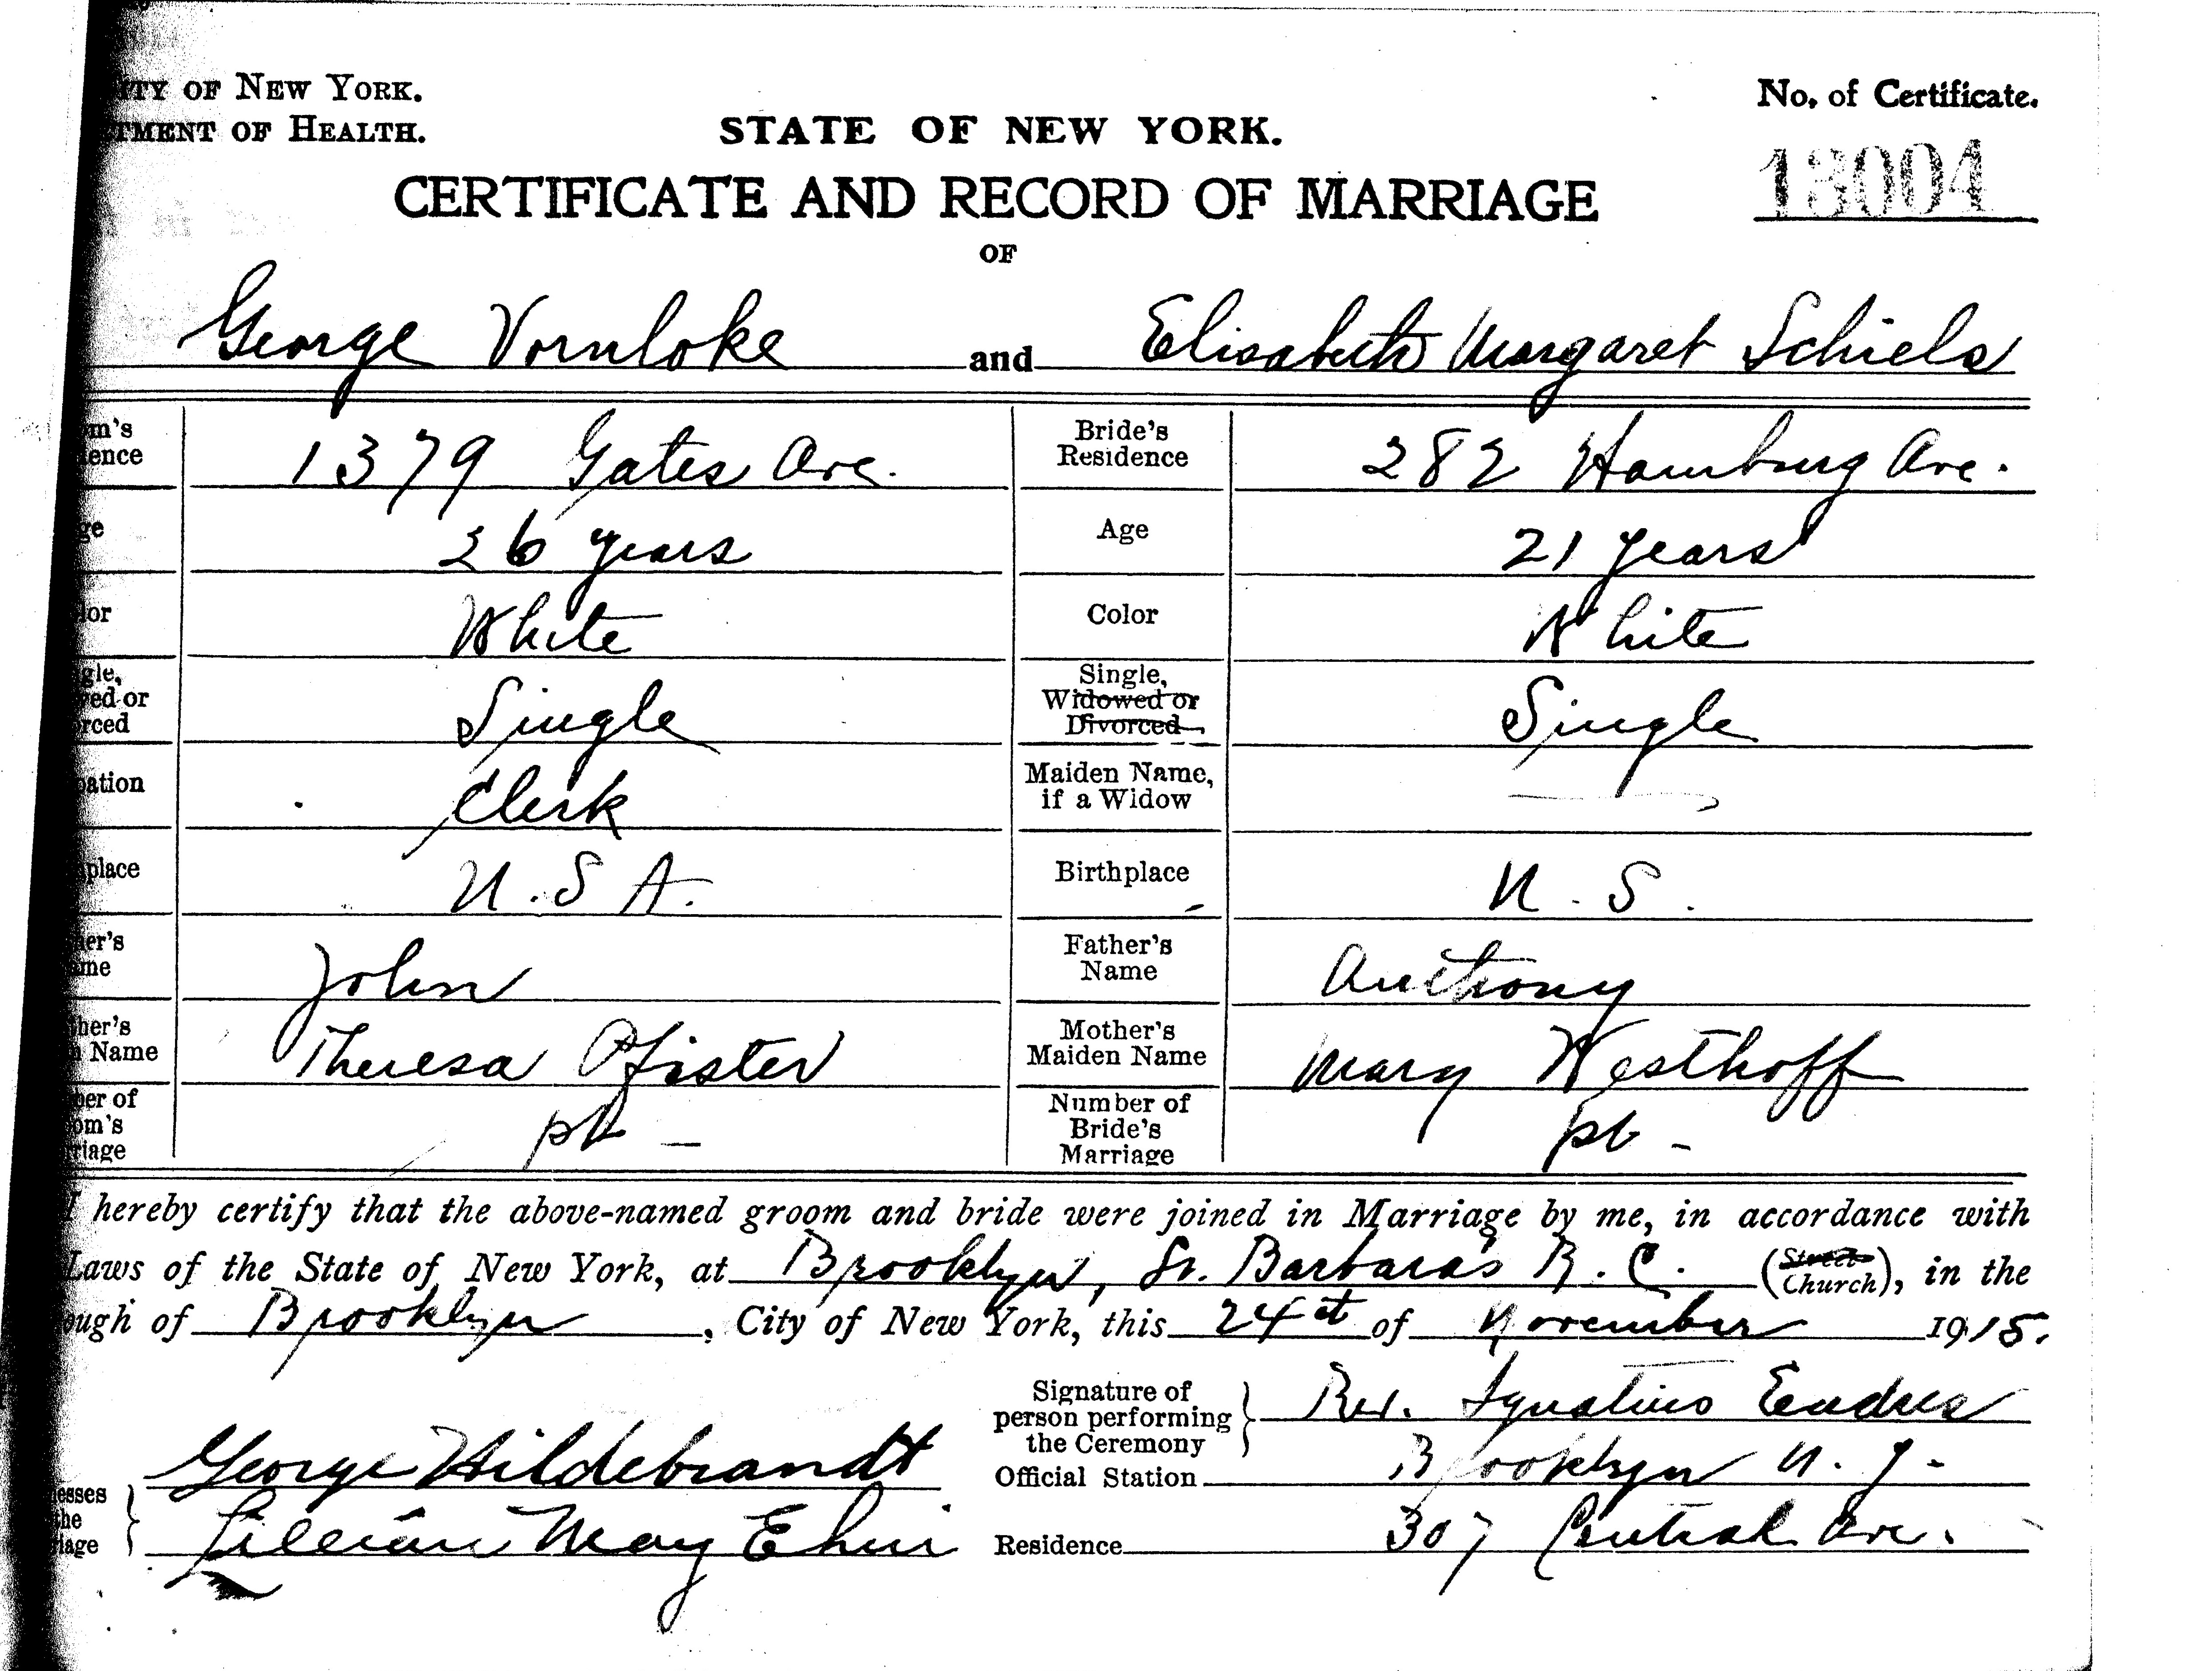 ITY OF NEW YORK.
TMENT OF HEALTH.
STATE OF NEW YORK.
No. of Certificate.
13004
CERTIFICATE AND RECORD OF MARRIAGE
OF
George Vornloke and Elisabeth Margaret Schiels
m's
ence
1379 Gates Ave.
Bride's
Residence
282 Hamburg Ave.
ge
26 years
Age
21 years
lor
White
Color
White
gle,
ed or
rced
Single
Single,
Widowed or
Divorced
Single
ation
Clerk
Maiden Name,
if a Widow
place
U.S.A.
Birthplace
U.S.
er's
me
John
Father's
Name
Anthony
her's
Name
Theresa Pfister
Mother's
Maiden Name
Mary Westhoff
er of
om's
riage
Number of
Bride's
Marriage
I hereby certify that the above-named groom and bride were joined in Marriage by me, in accordance with
Laws of the State of New York, at Brooklyn, St. Barbara's R. C. (Street Church), in the
ough of Brooklyn, City of New York, this 24st of November 1915.
Signature of
person performing
the Ceremony
Rev. Ignatius Endres
Official Station Brooklyn N. Y.
Residence 307 Central Ave.
esses
the
iage
George Hildebrandt
Lillian May